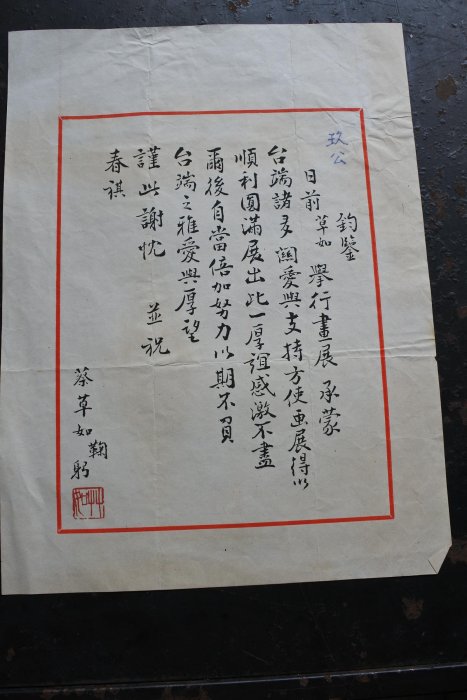 玖公
鈞鑒
日前草如舉行畫展承蒙
台端諸多關愛與支持方使画展得以
順利圓滿展出此一厚誼感激不盡
爾後自當倍加努力以期不負
台端之雅愛與厚望
謹此謝忱 並祝
春祺
蔡草如鞠躬
草如